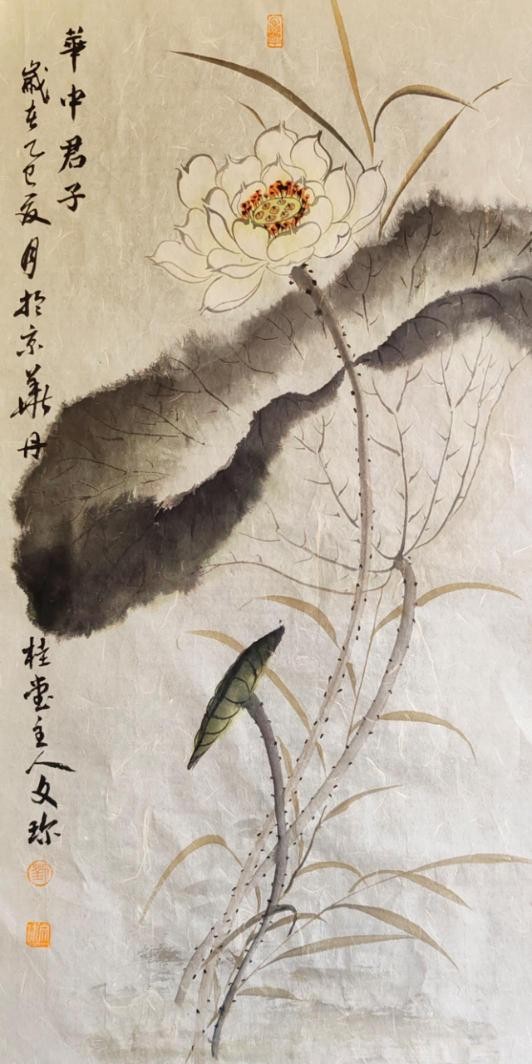 華中君子
歲在乙巳夏月於京華丹
桂堂主人文珎